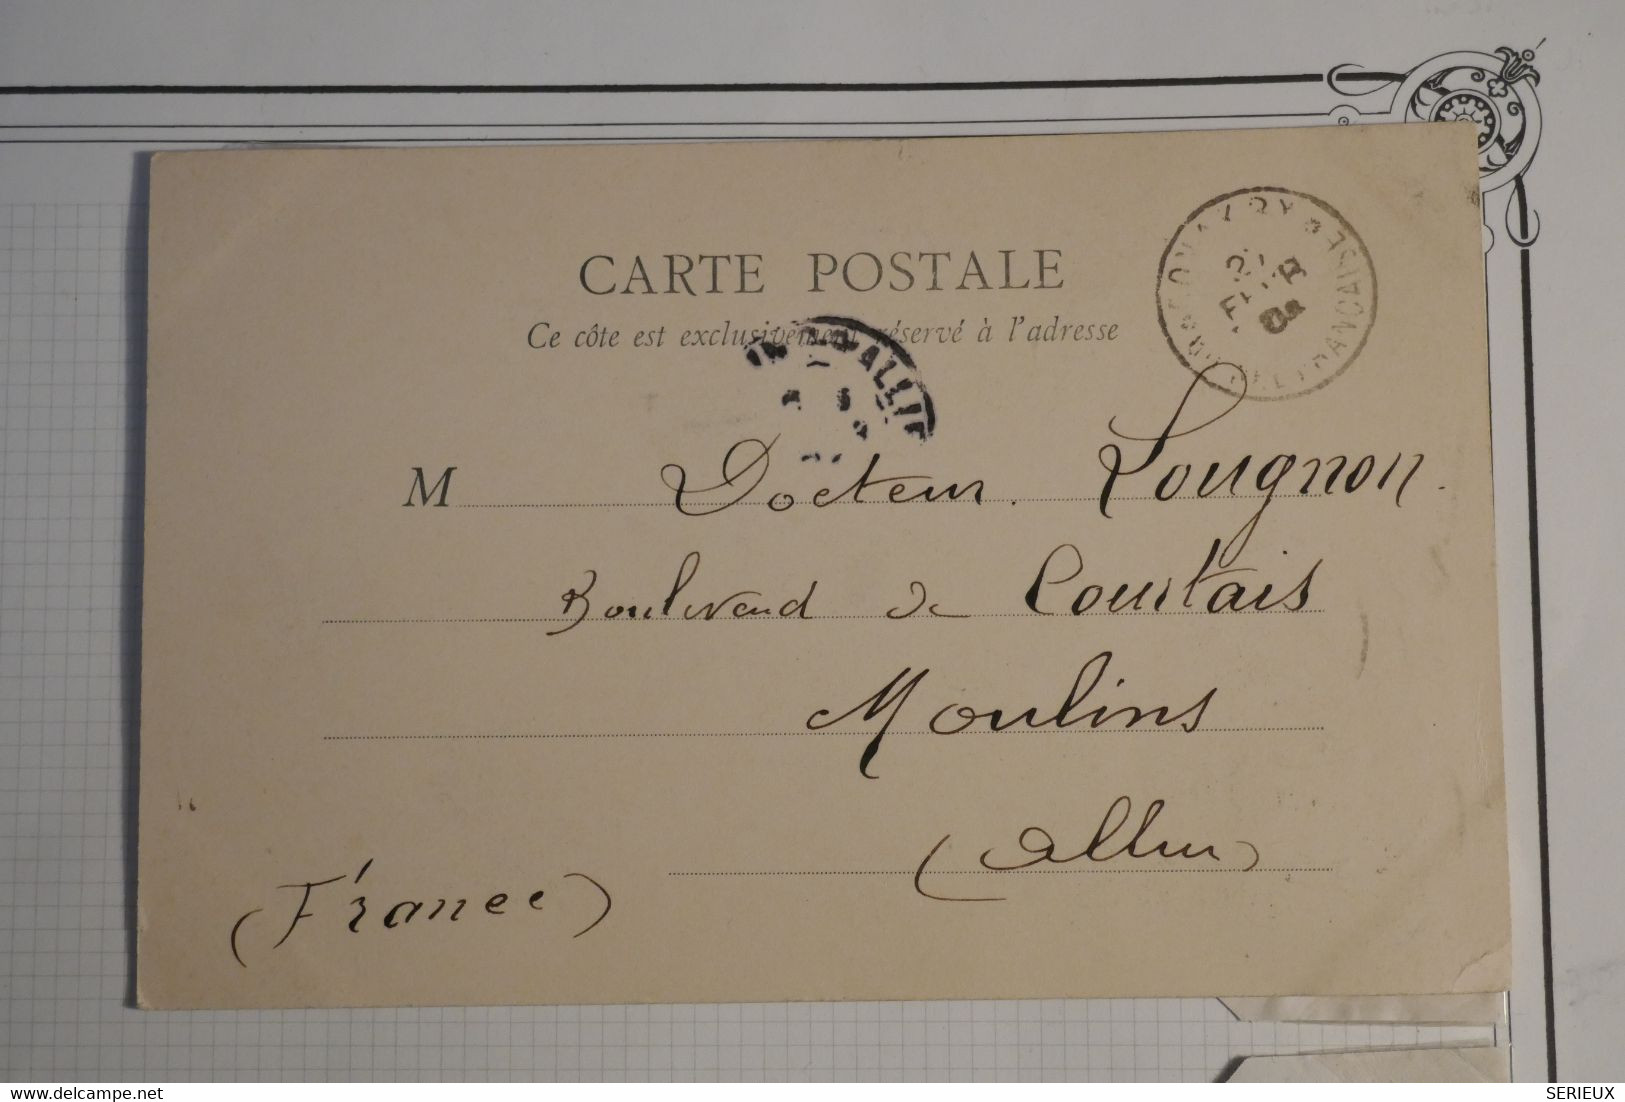 CARTE POSTALE
Ce côte est exclusivement réservé à l'adresse
FRANÇAISE
FEVR
ALLIE
M Docteur Lougnon
Boulevard de Courtais
Moulins
(Allier)
(France)
delcampe.net
SERIEUX